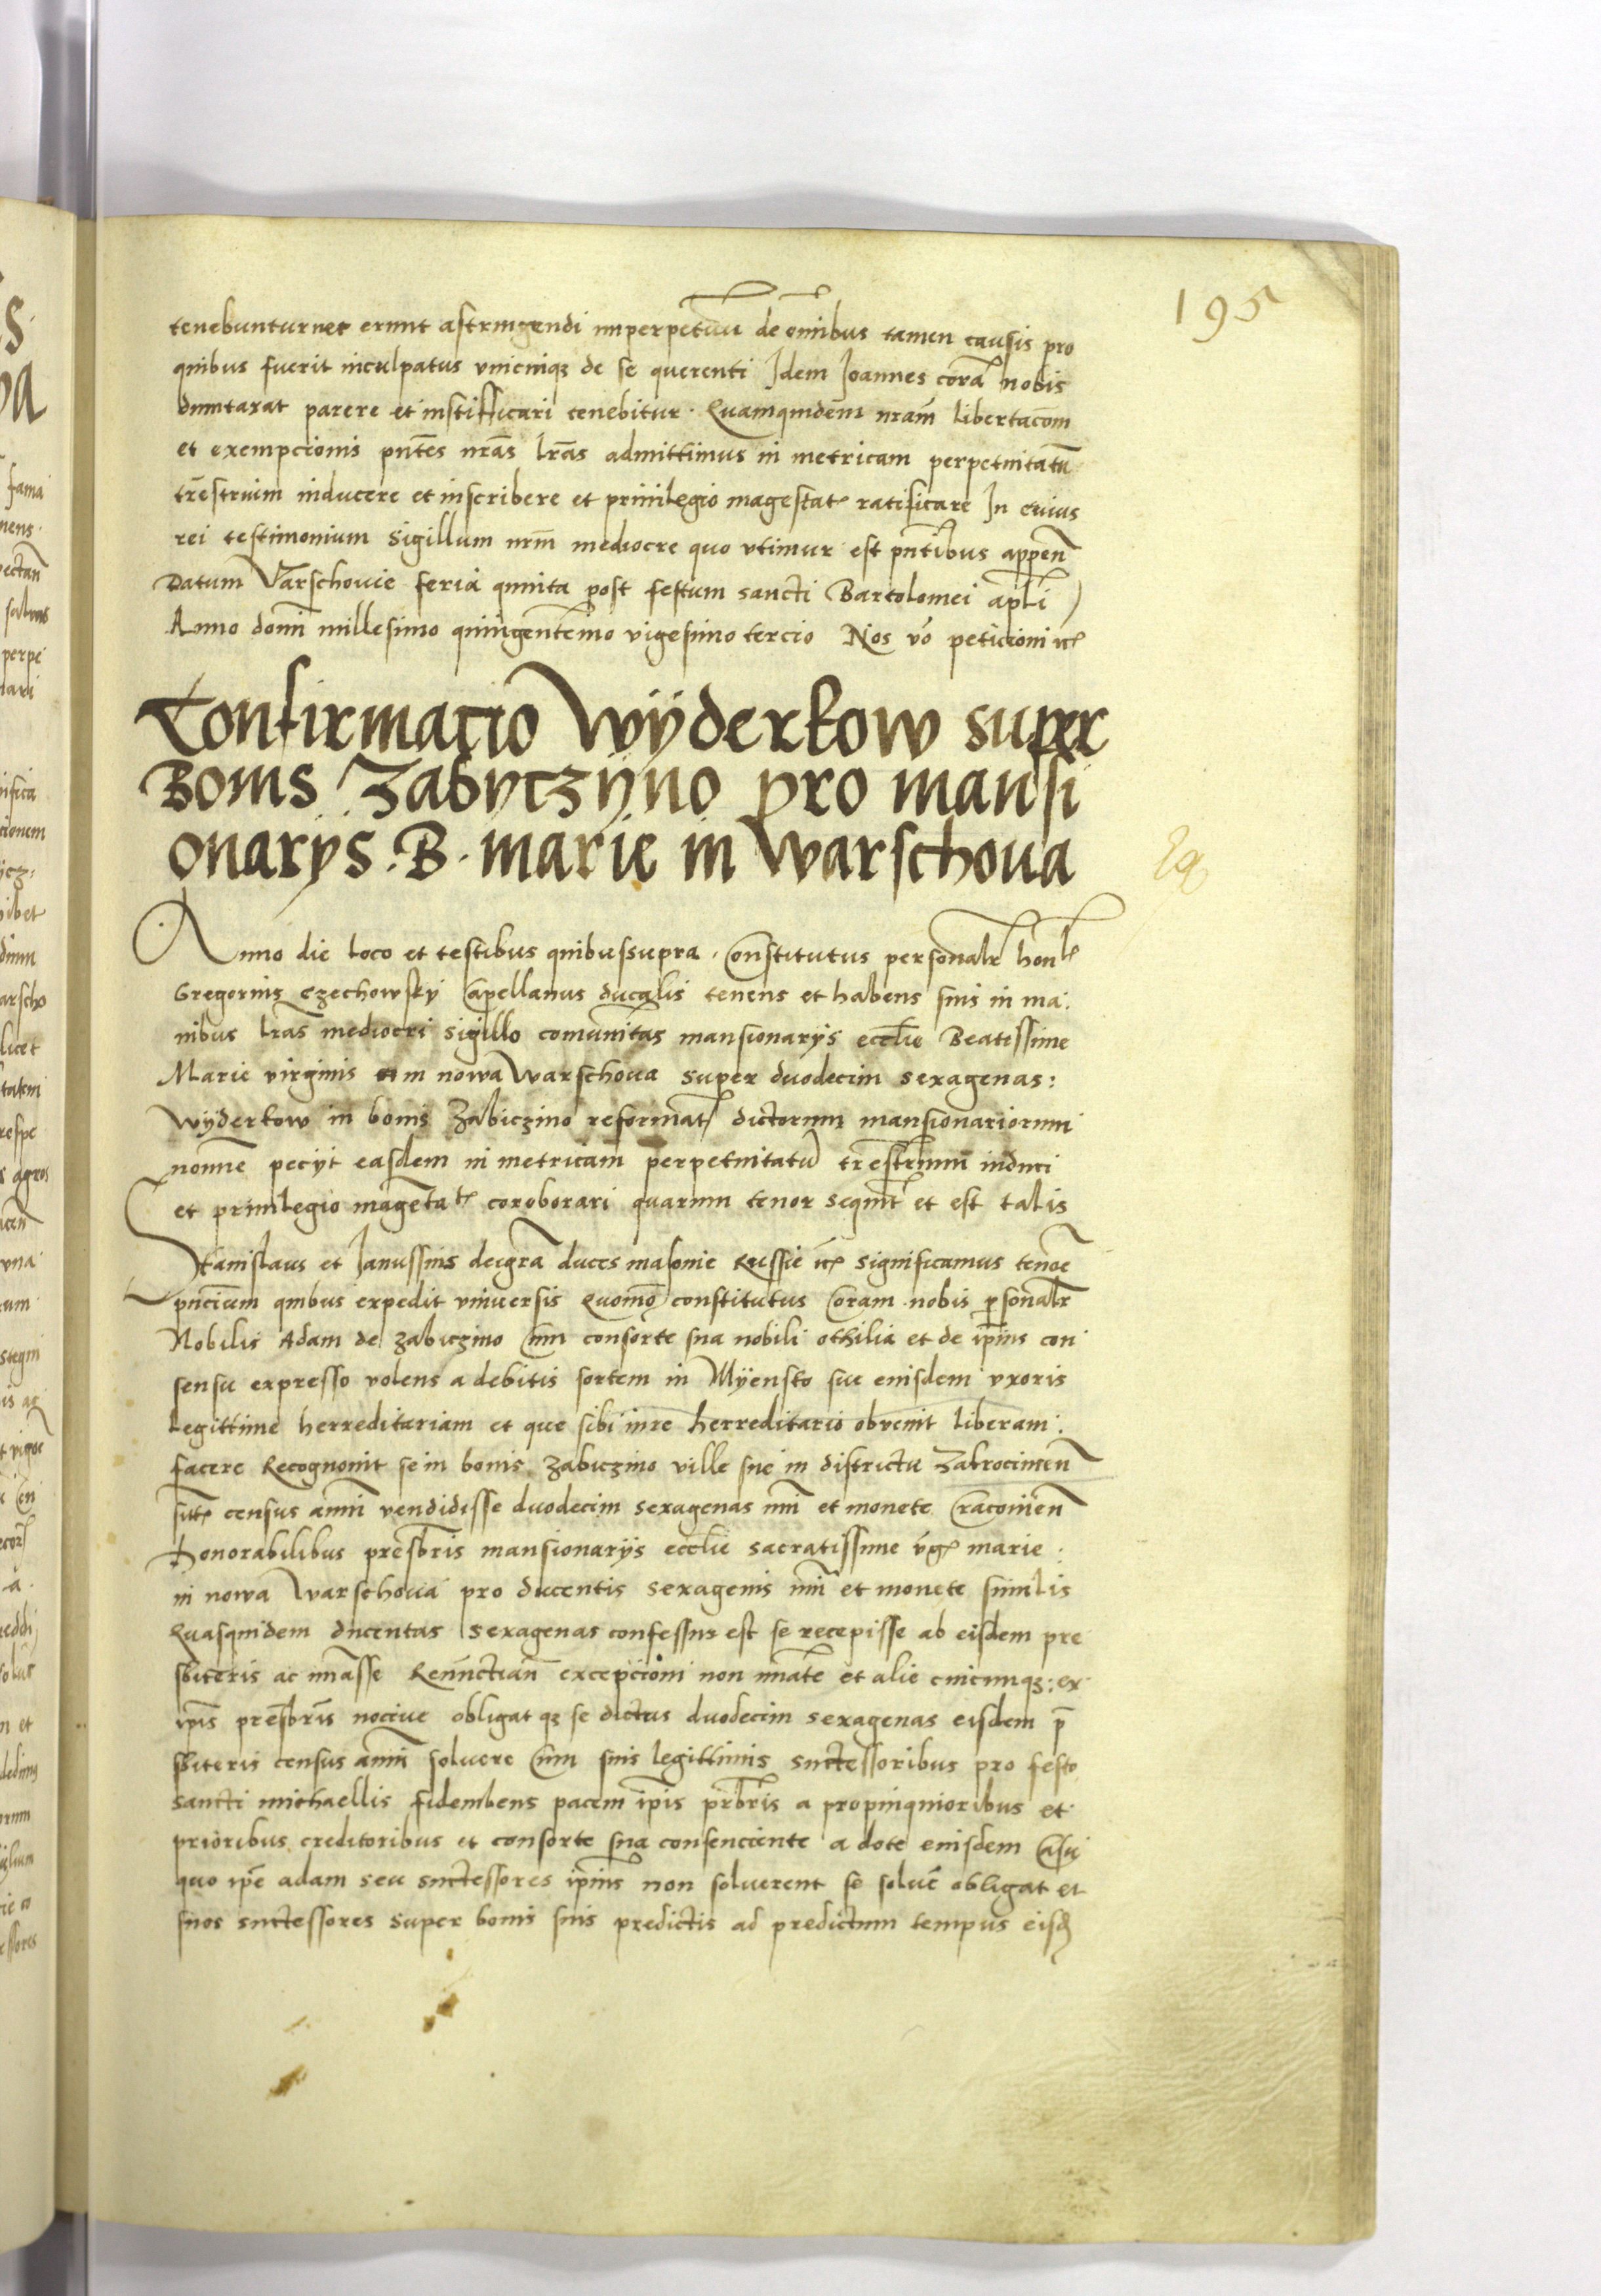 195
tenebuntur nec erunt astringendi imperpetuu de omibus tamen causis pro
quibus fuerit inculpatus vnicuiqz de se querenti Idem Joannes cora nobis
dumtaxat parere et iustifficari tenebitur. Quamquidem nram libertacom
et exempcionis pntes nras lras admittimus in metricam perpetuitatu
trestruim inducere et inscribere et priuilegio magestat ratificare In cuius
rei testimonium Sigillum nrm mediocre quo vtimur est pntibus appen
Datum Varschouie feria quinta post festum sancti Bartolomei apli
Anno domi millesimo quingentemo vigesimo tercio Nos vo peticioni
Confirmacio Wÿderkow super
Bonis Zabyczÿno pro mansi
onarÿs. B. marie in Warschoua
Anno die loco et testibus quibussupra. Constitutus personalr
Gregorius Czechowskÿ Capellanus ducalis tenens et habens suis in ma
nibus lras mediocri sigillo comunitas mansionarÿs ecclie Beatissime
Marie virginis in nowa Warschoua super duodecim sexagenas:
Wÿderkow in bonis Zabiczino reformat dictorum mansionariorum
nomne peciÿt easdem in metricam perpetuitatu trestrium induci
et priuilegio magetat coroborari quarum tenor sequit et est talis
Stanislaus et Janussius deigra duces masouie Russie significamus tenoe
pncium quibus expedit vniuersis Quomo constitutus Coram nobis psonalr
Nobilis Adam de Zabiczino Cum consorte sua nobili othilia et de ipius con
sensu expresso volens a debitis sortem in Mÿensto sue euisdem vxoris
legittime herreditariam et que sibi iure herreditario obvenit liberam
facere Recognouit se in bonis Zabiczino ville sue in districtu Zakrocimen
census anni vendidisse duodecim sexagenas nui et monete Craconien
honorabilibus presbris mansionarÿs ecclie sacratissime vg marie
in nowa Warschoua pro ducentis sexagenis nui et monete similis
Quasquidem ducentas sexagenas confessus est se recepisse ab eisdem pre
sbiteris ac nuasse excepcioni non nuate et alie cuicunqz: ex
ipis presbris nociue obligat qz se dictas duodecim sexagenas eisdem p
sbiteris census anni soluere Cum suis legittimis suctessoribus pro festo
sancti michaellis fidembens pacem ipis prbris a propinquioribus et
prioribus creditoribus et consorte sua consenciente a dote euisdem Casu
quo ipe adam seu suctessores ipius non soluerent se solue obligat et
suos suctessores super bonis suis predictis ad predictum tempus eisd